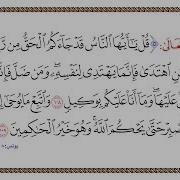 تعالى: ﴿قُلْ يَٰٓأَيُّهَا ٱلنَّاسُ قَدْ جَآءَكُمُ ٱلْحَقُّ مِن
ٱهْتَدَىٰ فَإِنَّمَا يَهْتَدِى لِنَفْسِهِۦ وَمَن ضَلَّ
عَلَيْهَا وَمَآ أَنَا۠ عَلَيْكُم بِوَكِيلٍ ١٠٨ وَٱتَّبِعْ مَا يُوحَىٰٓ
حَتَّىٰ يَحْكُمَ ٱللَّهُ وَهُوَ خَيْرُ ٱلْحَٰكِمِينَ ١٠٩
يونس: